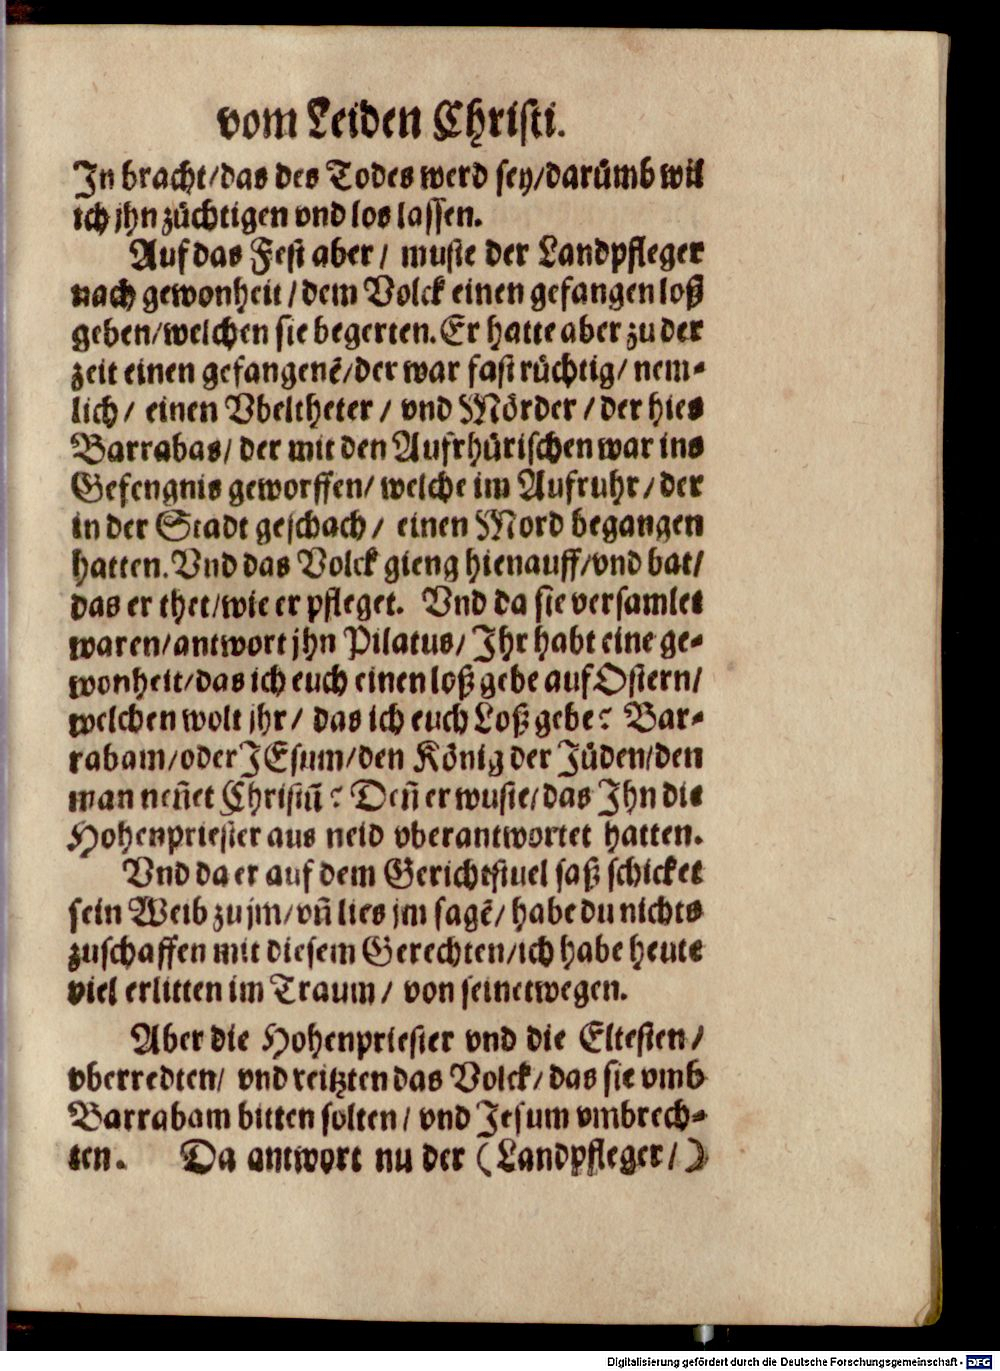 vom Leiden Chriſti.
Jn bracht/das des Todes werd ſey/darümb wil
ich jhn züchtigen vnd los laſſen.
Auf das Feſt aber/ muſte der Landpfleger
nach gewonheit/dem Volck einen gefangen loß
geben/welchen ſie begerten. Er hatte aber zu der
zeit einen gefangenē/der war faſt rüchtig/ nem⸗
lich/ einen Vbeltheter/ vnd Mörder/der hies
Barrabas/ der mit den Aufrhüriſchen war ins
Gefengnis geworffen/ welche im Aufruhr/der
in der Stadt geſchach/ einen Mord begangen
hatten. Vnd das Volck gieng hienauff/vnd bat/
das er thet/wie er pfleget. Vnd da ſie verſamlet
waren/antwort jhn Pilatus/ Jhr habt eine ge⸗
wonheit/das ich euch einen loß gebe auf Oſtern/
welchen wolt jhr/ das ich euch Loß gebe? Bar⸗
rabam/oder JEſum/den König der Jüden/den
man neñet Chriſtū? Deñ er wuſte/das Jhn die
Hohenprieſter aus neid vberantwortet hatten.
Vnd da er auf dem Gerichtſtuel ſaß ſchicket
ſein Weib zu jm/vñ lies jm ſagē/ habe du nichts
zuſchaffen mit dieſem Gerechten/ich habe heute
viel erlitten im Traum/ von ſeinetwegen.
Aber die Hohenprieſter vnd die Elteſten/
vberredten/ vnd reitzten das Volck/das ſie vmb
Barrabam bitten ſolten/ vnd Jeſum vmbrech⸗
ten. Da antwort nu der (Landpfleger/)
Digitalisierung gefördert durch die Deutsche Forschungsgemeinschaft - DFG